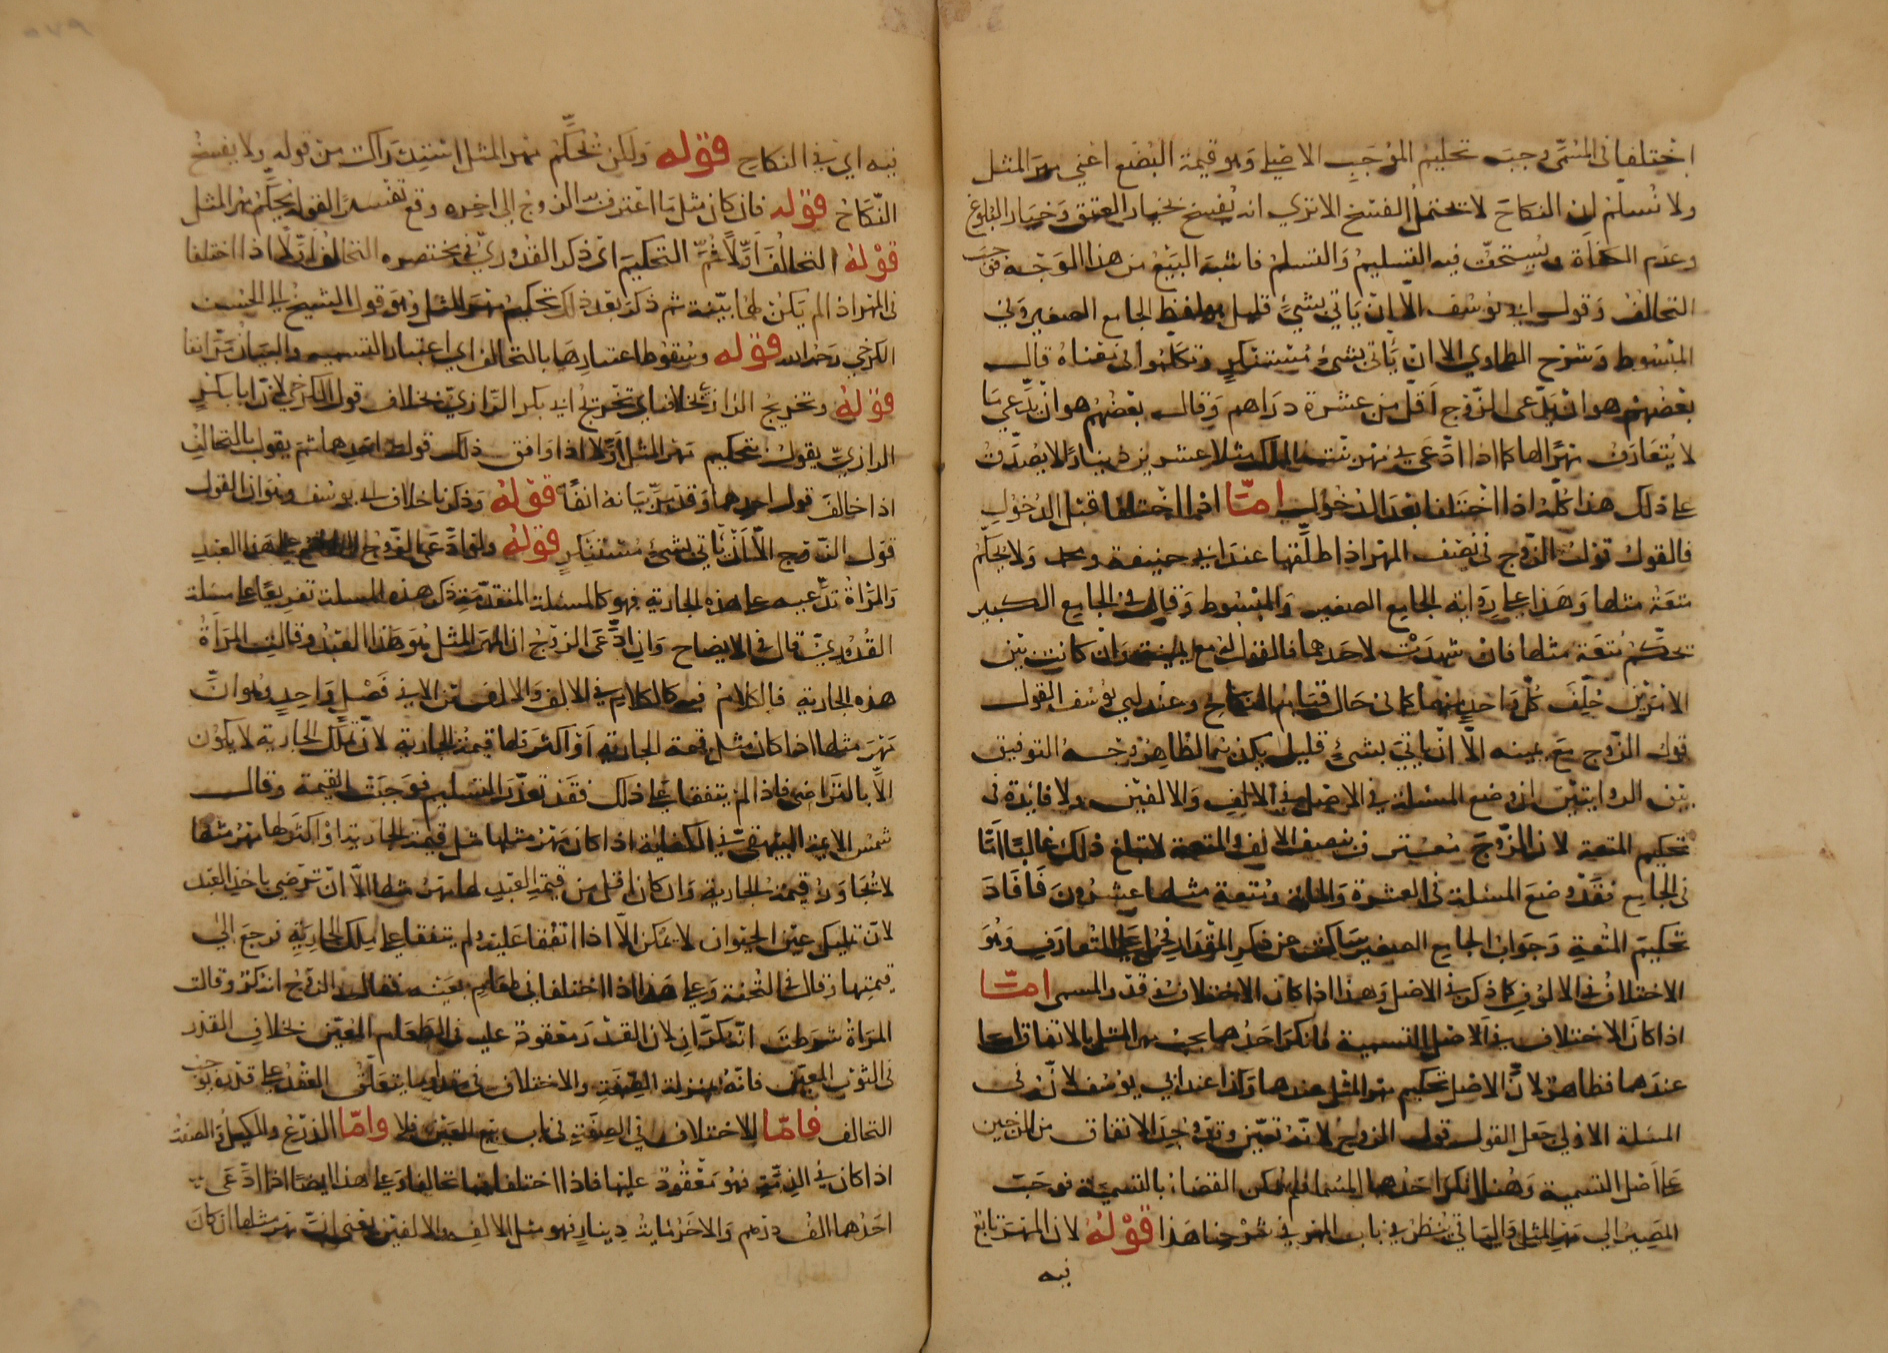 اختلفا في المسمى وجب تحكيم الموجب الاصلي وهو قيمة البضع اعني مهر المثل
ولا نسلم ان النكاح لا يحتمل الفسخ الا تري انه يفسخ بخيار العتق وخيار البلوغ
وعدم الكفاة ويستحق فيه التسليم والتسلم فاشبه البيع من هذا الوجه فوجب
التحالف وقول ابي يوسف الا ان ياتي بشيء قليل هو لفظ الجامع الصغير وفي
المبسوط وشرح الطحاوي الا ان ياتي بشيء مستنكر وتكلموا في معناه قال
بعضهم هو ان يدعي الزوج اقل من عشرة دراهم وقال بعضهم هو ان يدعي ما
لا يتعارف مهرا لها كما اذا ادعى في مهر بنت الملك مثلا عشرين دينارا لا يصدق
على ذلك هذا كله اذا اختلفا بعد الدخول اما اذا اختلفا قبل الدخول
فالقول قول الزوج في نصف المهر اذا طلقها عند ابي حنيفة ومحمد ولا يحكم
متعة مثلها وهذا على رواية الجامع الصغير والمبسوط وقال في الجامع الكبير
تحكم متعة مثلها فان شهدت لاحدهما فالقول له مع اليمين وان كانت بين
الامرين حلف كل واحد منهما كما في حال قيام النكاح وعند ابي يوسف القول
قول الزوج مع يمينه الا ان ياتي بشيء قليل يكذبه الظاهر وجه التوفيق
بين الروايتين انه وضع المسئلة في الاصل في الالف والالفين ولا فائدة في
تحكيم المتعة لان الزوج معترف بنصف الالف والمتعة لا تبلغ ذلك غالبا اما
في الجامع فقد وضع المسئلة في العشرة والماية ومتعة مثلها عشرون فافاد
تحكيم المتعة وجواب الجامع الصغير ساكت عن ذكر المقدار فحمل على المتعارف وهو
الاختلاف في الالوف كما ذكر في الاصل وهذا اذا كان الاختلاف في قدر المسمى اما
اذا كان الاختلاف في الاصل التسمية فانكر احدهما يجب مهر المثل بالاتفاق اما
عندهما فظاهر لان الاصل تحكيم مهر المثل عندهما وكذا عند ابي يوسف لانه في
المسئلة الاولي جعل القول قول الزوج لانه تعين وقد وجد الاتفاق من الزوجين
على اصل التسمية وهنا انكر احدهما المسمى فلم يمكن القضاء بالتسمية فوجب
المصير الي مهر المثل والباقي ينظر في باب المهر في شرحنا هذا قوله لان المهر تابع
فيه
فيه اي في النكاح قوله ولكن تحكم مهر المثل استدراك من قوله ولا يفسخ
النكاح قوله فان كان مثل ما اعترف به الزوج الى اخره وقع تفسيرا لقوله يحكم مهر المثل
قوله التحالف اولا ثم التحكيم اي ذكر القدوري في مختصره التحالف اولا اذا اختلفا
في المهر اذا لم يكن لهما بينة ثم ذكر بعد ذلك تحكيم مهر المثل وهو قول الشيخ ابي الحسن
الكرخي رحمه الله قوله وسقوط اعتبارها بالتحالف اي اعتبار التسمية والبيان مر انفا
قوله وتخريج الرازي بخلافه اي تخريج ابي بكر الرازي بخلاف قول الكرخي لان ابا بكر
الرازي يقول بتحكيم مهر المثل اولا اذا وافق ذلك قول احدهما ثم يقول بالتحالف
اذا خالف قول احدهما وقد مر بيانه انفا قوله وذكرنا خلاف ابي يوسف وهو ان القول
قول الزوج الا ان ياتي بشيء مستنكر قوله ولو ادعى الزوج النكاح على هذا العبد
والمراة تدعيه على هذه الجارية فهو كالمسئلة المتقدمة ذكر هذه المسئلة تفريعا على مسئلة
القدوري قال في الايضاح وان ادعى الزوج ان المهر المثل هو هذا العبد وقالت المراة
هذه الجارية فالكلام فيه كالكلام في الالف والالفين الا في فصل واحد وهو ان
مهر مثلها اذا كان مثل قيمة الجارية او اكثر فلها قيمة الجارية لان تملك الجارية لا يكون
الا بالتراضي فاذا لم يتفقا على ذلك فقد تعذر التسليم فوجبت القيمة وقال
شمس الايمة البيهقي في الكفاية اذا كان مهر مثلها مثل قيمة الجارية او اكثر لها مهر مثلها
لا تجاوز قيمة الجارية وان كان اقل من قيمة العبد لها مهر مثلها الا ان ترضى باخذ العبد
لان تمليك عين الحيوان لا يمكن الا اذا اتفقا عليه ولم يتفقا على ملك الجارية فرجع الي
قيمتها وقال في التحفة وعلى هذا اذا اختلفا في طعام بعينه فقال الزوج انه كر وقالت
المراة شرطت انه كران لان القدر معقود عليه في الطعام المعين بخلاف القدر
في الثوب المعين فانه بمنزلة الصفة والاختلاف في مقدار ما يتعلق العقد على قدره يوجب
التحالف فاما الاختلاف في الصفة في باب بيع العين فلا واما الذرع والكيل والصفة
اذا كان في الذمة فهو معقود عليها فاذا اختلفا فيها تحالفا وعلى هذا ايضا اذا ادعى
احدهما الف درهم والاخر مائة دينار فهو مثل الالف والالفين يعني ان مهر مثلها ان كان